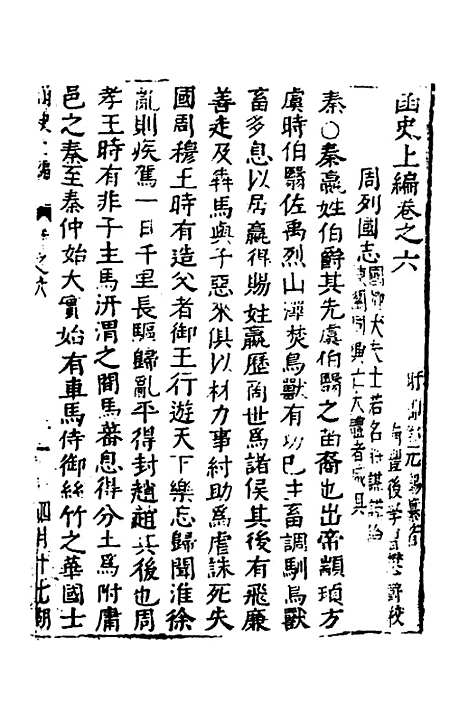 函史上編卷之六
元錫纂著
南豐後學
周列國志
國卿大夫士若名
興亡大體者咸具
秦○秦嬴姓伯爵其先虞伯翳之苗裔也出帝顓頊方
虞時伯翳佐禹烈山澤焚鳥獸有功巳主畜調馴鳥獸
畜多息以居嬴得賜姓嬴歷商世爲諸侯其後有飛廉
善走及犇馬與子惡來俱以材力事紂助爲虐誅死失
國周穆王時有造父者御王行遊天下樂忘歸聞淮徐
亂則疾駕一日千里長驅歸亂平得封趙趙其後也周
孝王時有非子主馬汧渭之間馬蕃息得分土爲附庸
邑之秦至秦仲始大實始有車馬侍御絲竹之華國士
函史上編
卷之六